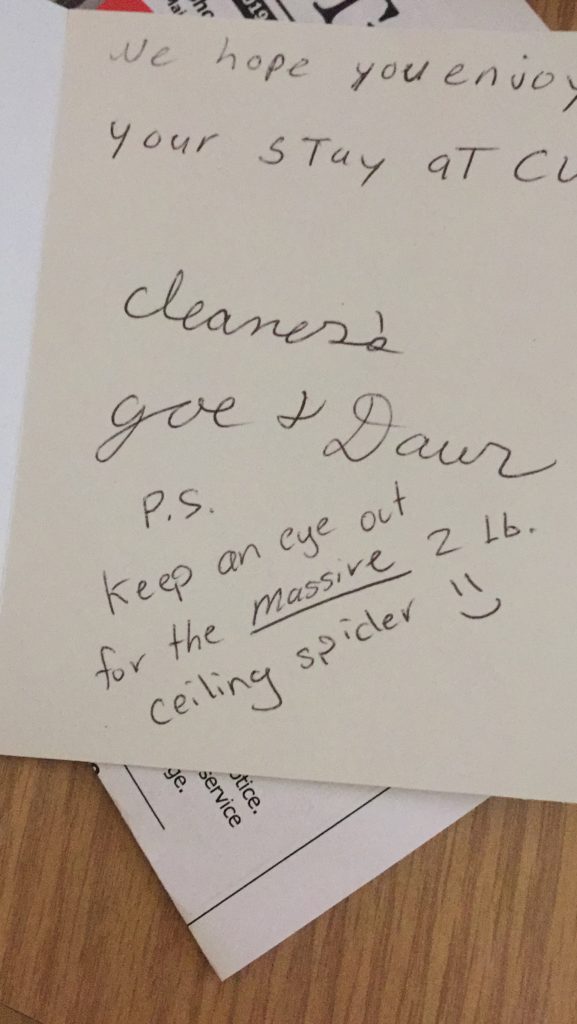 We hope you enjoy
your STay aT CU
cleaners
goe & Dawn
P.S.
Keep an eye out
for the massive 2 Lb.
ceiling spider
tice.
service
ge.